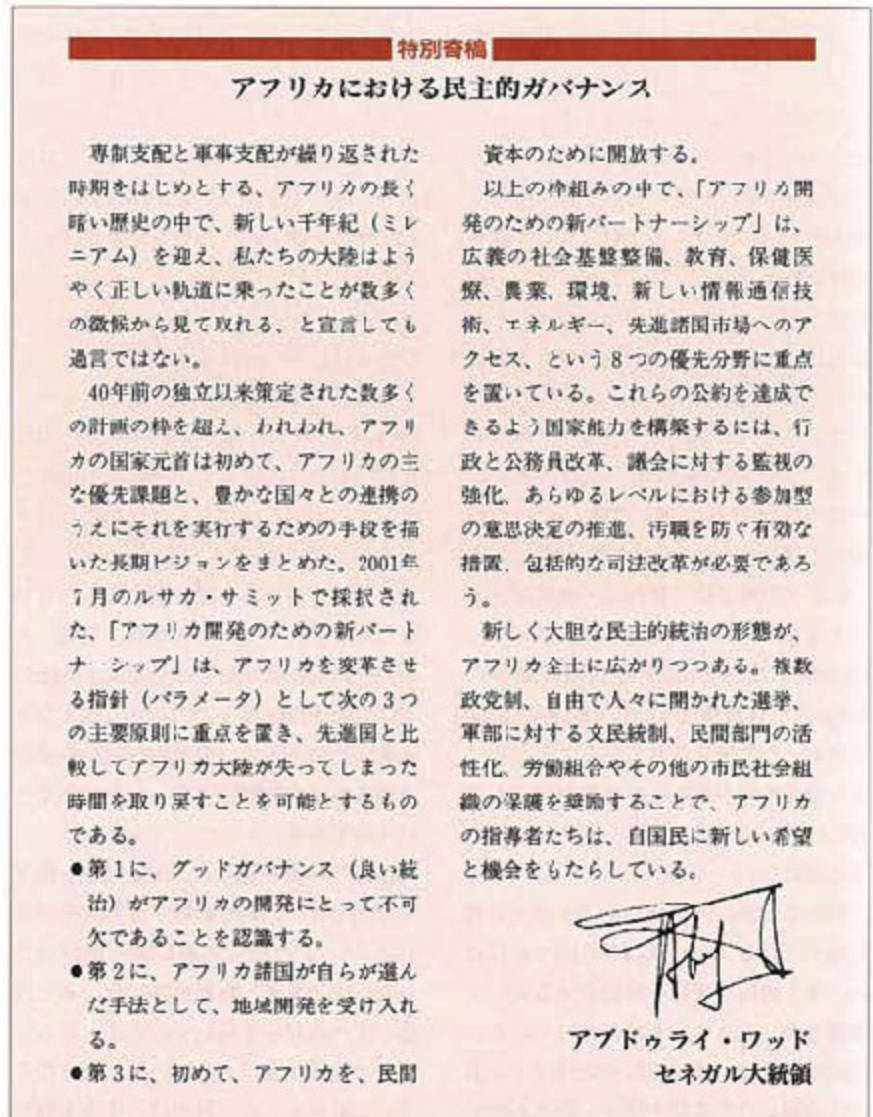 特別寄稿
アフリカにおける民主的ガバナンス
専制支配と軍事支配が繰り返された
時期をはじめとする、アフリカの長く
暗い歴史の中で、新しい千年紀（ミレ
ニアム）を迎え、私たちの大陸はよう
やく正しい軌道に乗ったことが数多く
の徴候から見て取れる、と宣言しても
過言ではない。
40年前の独立以来策定された数多く
の計画の枠を超え、われわれ、アフリ
カの国家元首は初めて、アフリカの主
な優先課題と、豊かな国々との連携の
うえにそれを実行するための手段を描
いた長期ビジョンをまとめた。2001年
7月のルサカ・サミットで採択され
た、「アフリカ開発のための新パート
ナーシップ」は、アフリカを変革させ
る指針（パラメータ）として次の3つ
の主要原則に重点を置き、先進国と比
較してアフリカ大陸が失ってしまった
時間を取り戻すことを可能とするもの
である。
●第1に、グッドガバナンス（良い統
治）がアフリカの開発にとって不可
欠であることを認識する。
●第2に、アフリカ諸国が自らが選ん
だ手法として、地域開発を受け入れ
る。
●第3に、初めて、アフリカを、民間
資本のために開放する。
以上の枠組みの中で、「アフリカ開
発のための新パートナーシップ」は、
広義の社会基盤整備、教育、保健医
療、農業、環境、新しい情報通信技
術、エネルギー、先進諸国市場へのア
クセス、という8つの優先分野に重点
を置いている。これらの公約を達成で
きるよう国家能力を構築するには、行
政と公務員改革、議会に対する監視の
強化、あらゆるレベルにおける参加型
の意思決定の推進、汚職を防ぐ有効な
措置、包括的な司法改革が必要であろ
う。
新しく大胆な民主的統治の形態が、
アフリカ全土に広がりつつある。複数
政党制、自由で人々に開かれた選挙、
軍部に対する文民統制、民間部門の活
性化、労働組合やその他の市民社会組
織の保護を奨励することで、アフリカ
の指導者たちは、自国民に新しい希望
と機会をもたらしている。
アブドゥライ・ワッド
セネガル大統領